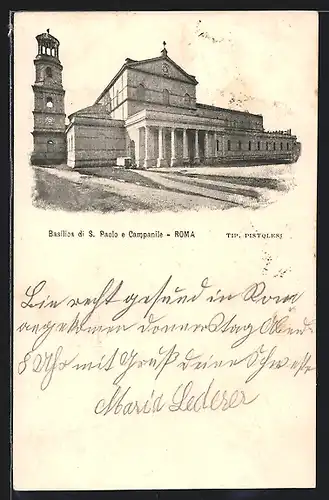 Basilica di S. Paolo e Campanile - ROMA
TIP. PISTOLESI
Bin recht gesund in Rom
angekommen Donnerstag Abend
8 Uhr mit Gruß deine Schwester
Maria Lederer